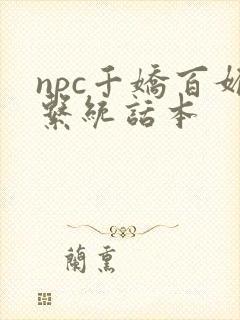 npc千嬌百媚
繫統話本
蘭熏